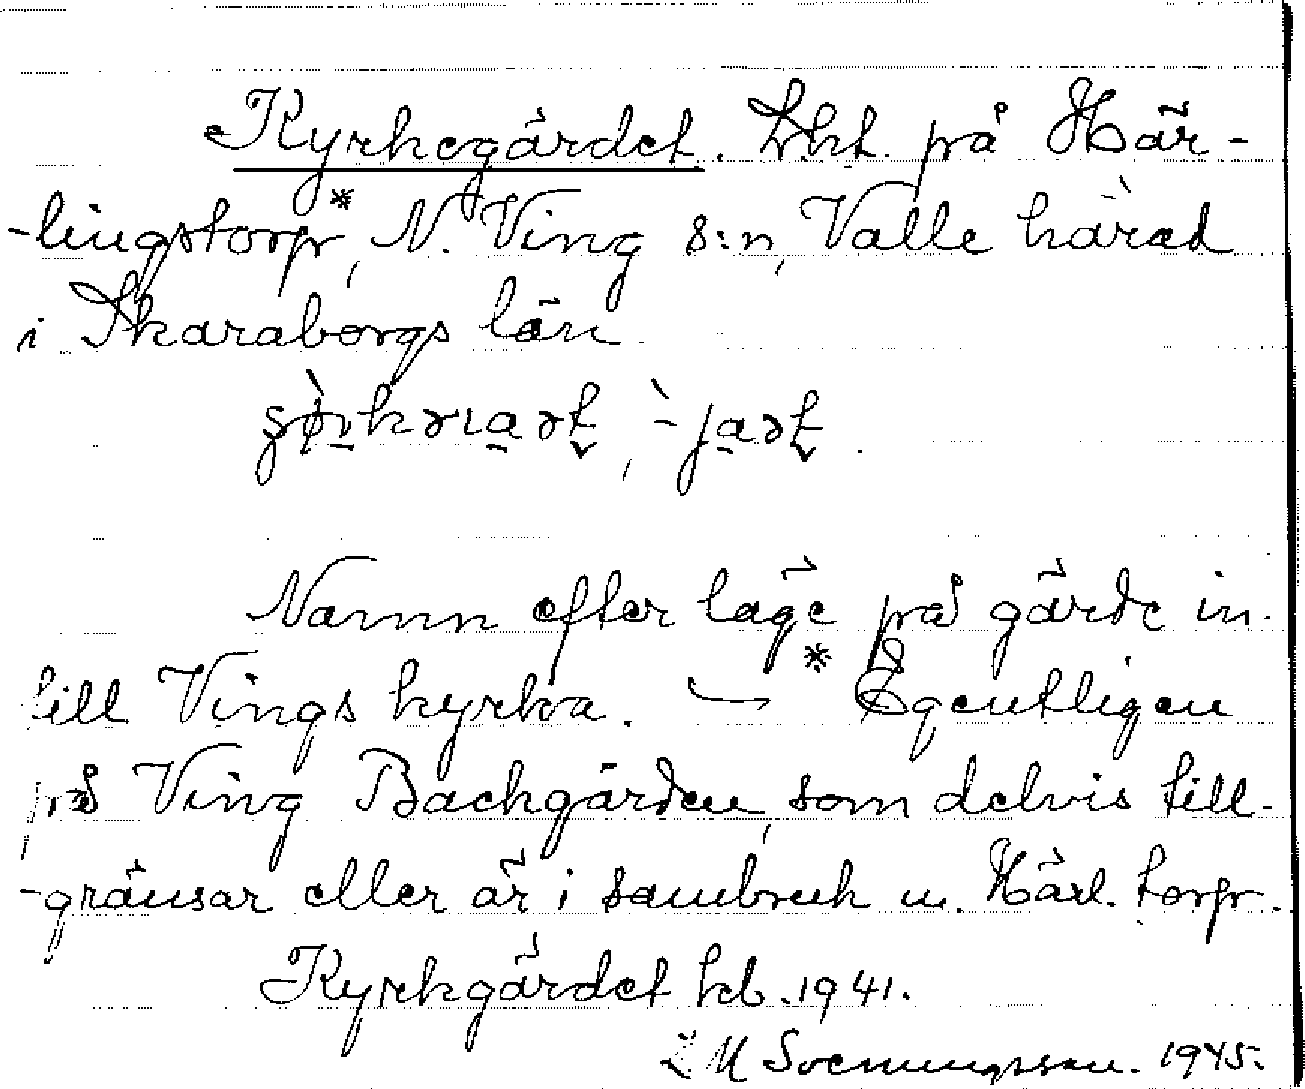 Kyrkegärdet. Lht. på Här-
-lingstorp*, N. Ving s:n, Valle härad
i Skaraborgs län.
Namn efter läge på gärde in-
till Vings kyrka. — * Egentligen
på Ving Backgården, som delvis till-
-gränsar eller är i sambruk m. Härl. torp.
Kyrkgärdet kb. 1941.
Svenungsson. 1945.